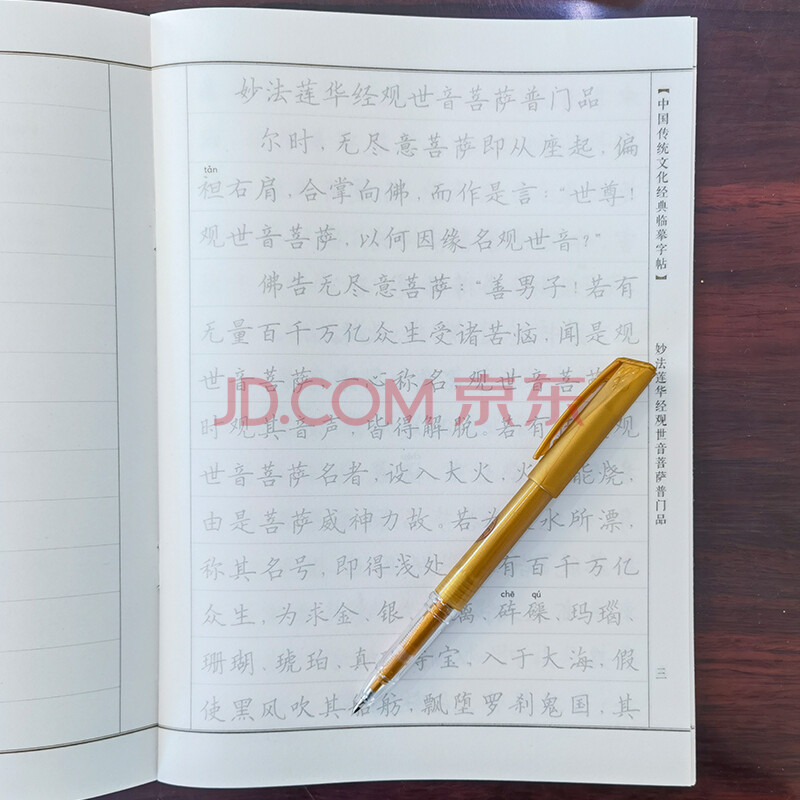 妙法莲华经观世音菩萨普门品
尔时，无尽意菩萨即从座起，偏
tǎn
袒右肩，合掌向佛，而作是言：“世尊！
观世音菩萨，以何因缘名观世音？”
佛告无尽意菩萨：“善男子！若有
无量百千万亿众生受诸苦恼，闻是观
世音菩萨 心称名 观世音菩萨
时观其音声，皆得解脱。若有 观
世音菩萨名者，设入大火，火 能烧，
由是菩萨威神力故。若为 水所漂，
称其名号，即得浅处 有百千万亿
chē qú
众生，为求金、银、 璃、砗磲、玛瑙、
珊瑚、琥珀、真 等宝，入于大海，假
使黑风吹其船舫，飘堕罗刹鬼国，其
【中国传统文化经典临摹字帖】
妙法莲华经观世音菩萨普门品
三
JD.COM 京东